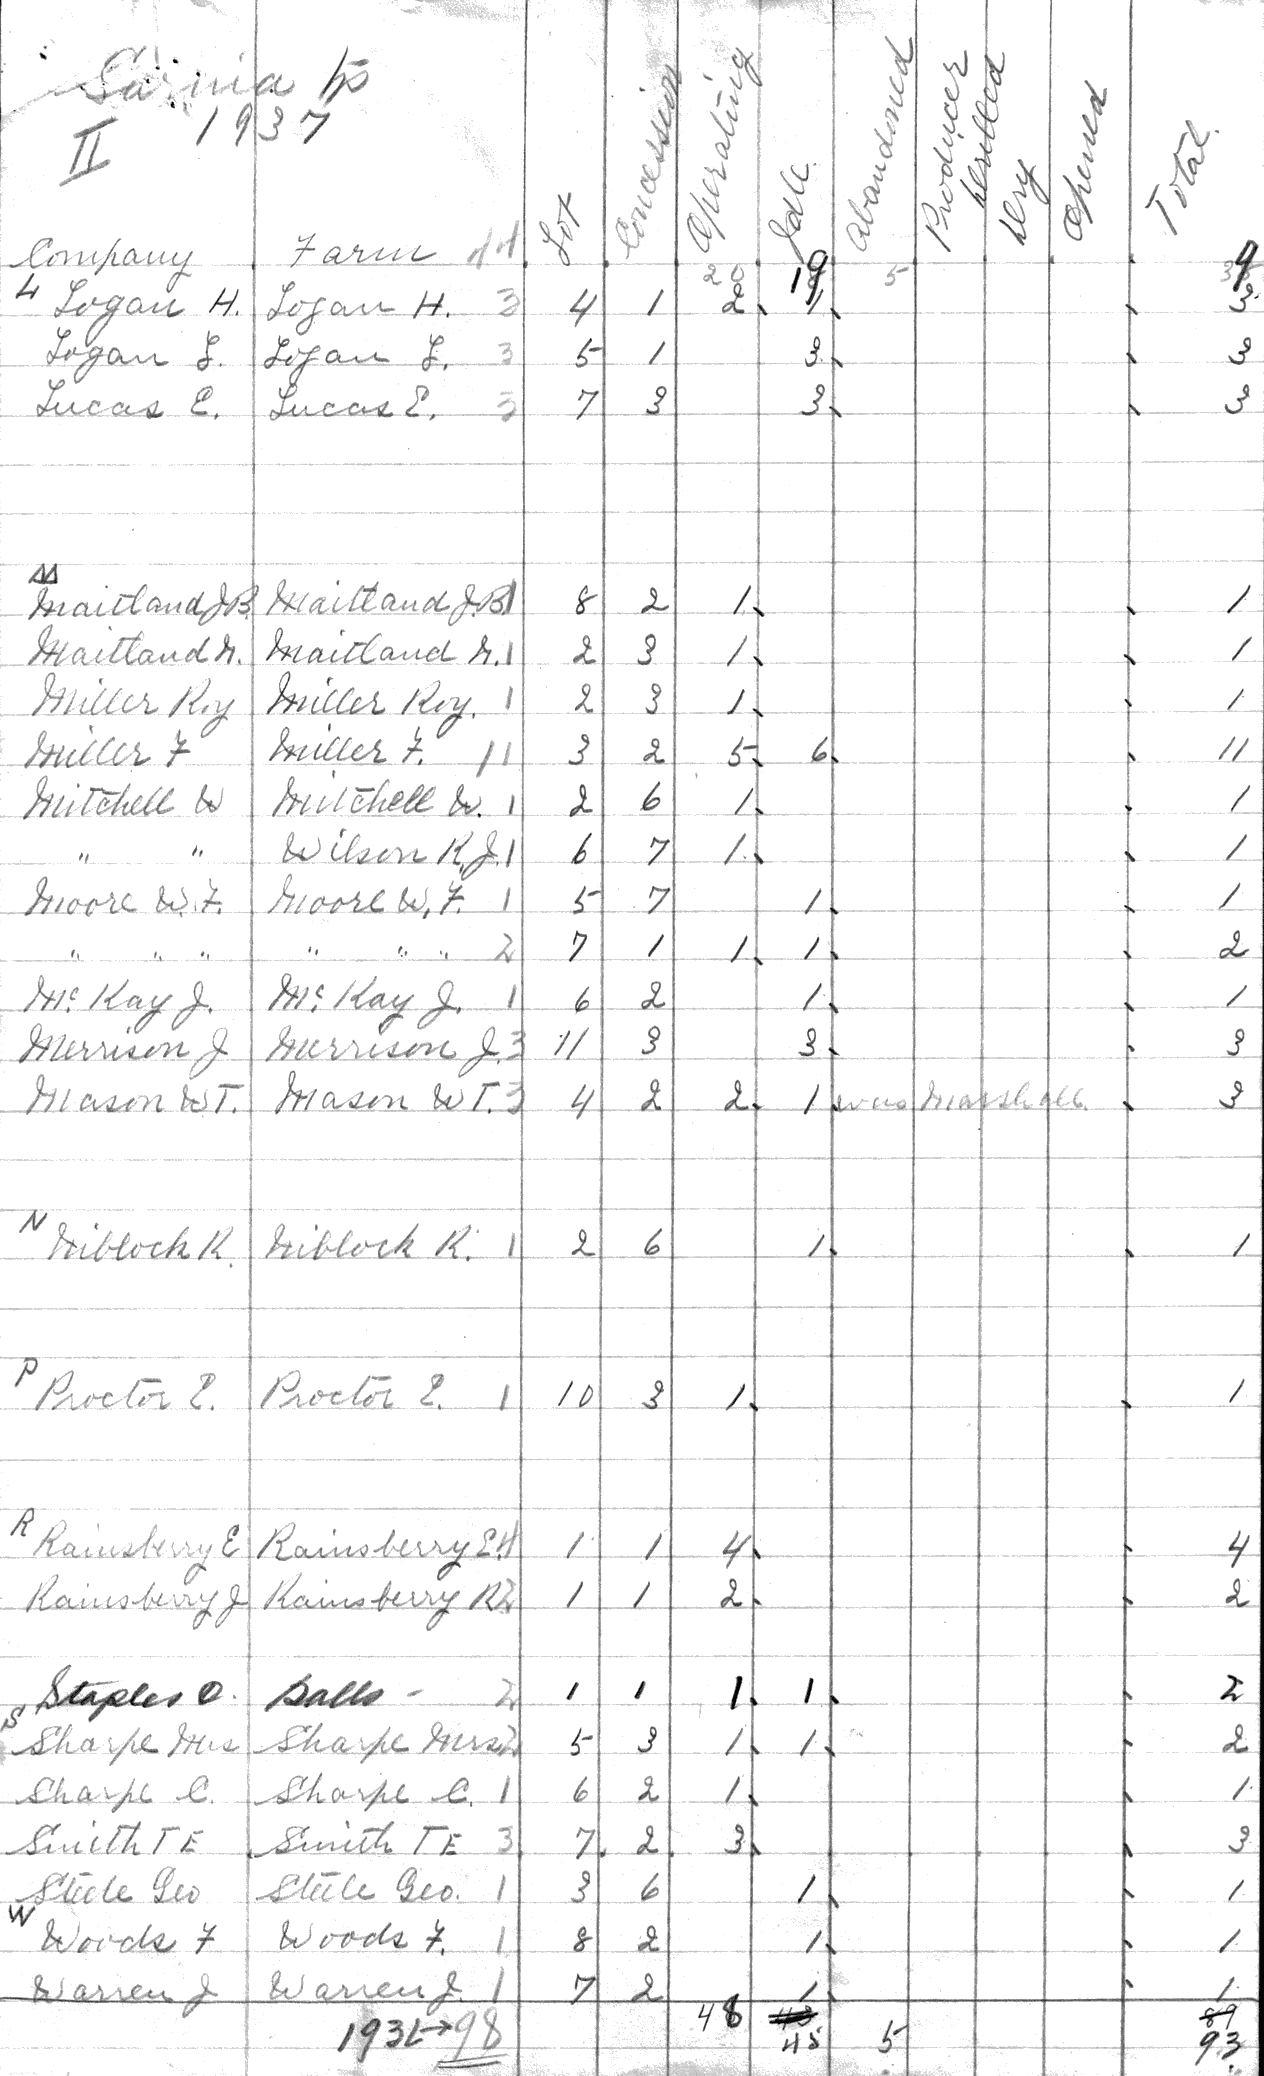 Sarnia Tp
II 1937
Company Farm 44 Lot Concession Operating Idle Abandoned Producer Drilled Dry Opened Total
20 19 5 39
L Logan H. Logan H. 3 4 1 2 1 3
Logan L. Logan L. 3 5 1 3 3
Lucas E. Lucas E. 3 7 3 3 3
M
Maitland J.B. Maitland J.B. 1 8 2 1 1
Maitland N. Maitland N. 1 2 3 1 1
Miller Roy Miller Roy. 1 2 3 1 1
Miller F Miller F. 11 3 2 5 6 11
Mitchell W Mitchell W. 1 2 6 1 1
" " Wilson R.J. 1 6 7 1 1
Moore W.F. Moore W.F. 1 5 7 1 1
" " " " " " 2 7 1 1 1 2
Mc Kay J. Mc Kay J. 1 6 2 1 1
Merrison J Merrison J. 3 11 3 3 3
Mason W T. Mason W T. 3 4 2 2 1 was Marshall. 3
N Niblock R. Niblock R. 1 2 6 1 1
P Proctor E. Proctor E. 1 10 3 1 1
R Rainsberry E Rainsberry E. 4 1 1 4 4
Rainsberry J Rainsberry R 2 1 1 2 2
Staples O. Salls - 2 1 1 1 1 2
S Sharpe Mrs Sharpe Mrs 2 5 3 1 1 2
Sharpe C. Sharpe C. 1 6 2 1 1
Smith T E Smith T E 3 7 2 3 3
Steele Geo Steele Geo. 1 3 6 1 1
W Woods F Woods F. 1 8 2 1 1
Warren J Warren J. 1 7 2 1 1
48 43 89
1936→98 45 5 93